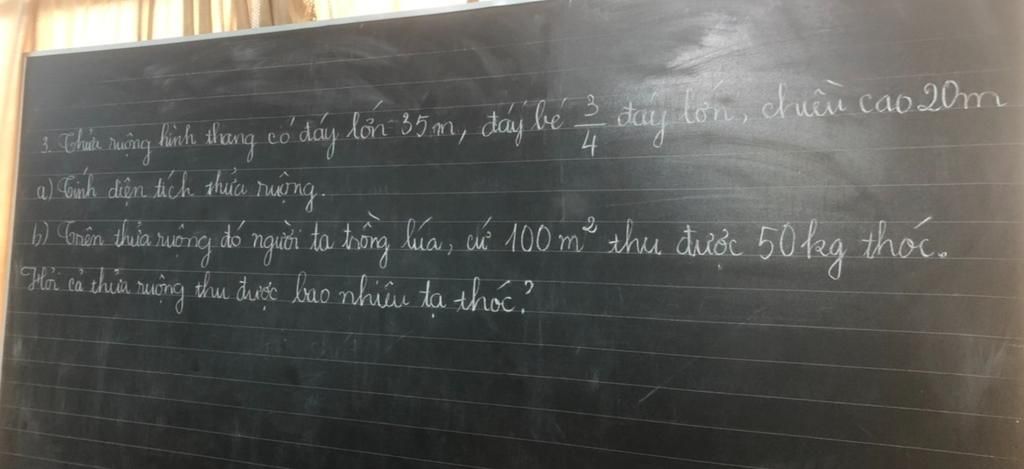 3. Thửa ruộng hình thang có đáy lớn 35m, đáy bé 3/4 đáy lớn, chiều cao 20m
a) Tính diện tích thửa ruộng.
b) Trên thửa ruộng đó người ta trồng lúa, cứ 100m² thu được 50kg thóc.
Hỏi cả thửa ruộng thu được bao nhiêu tạ thóc?